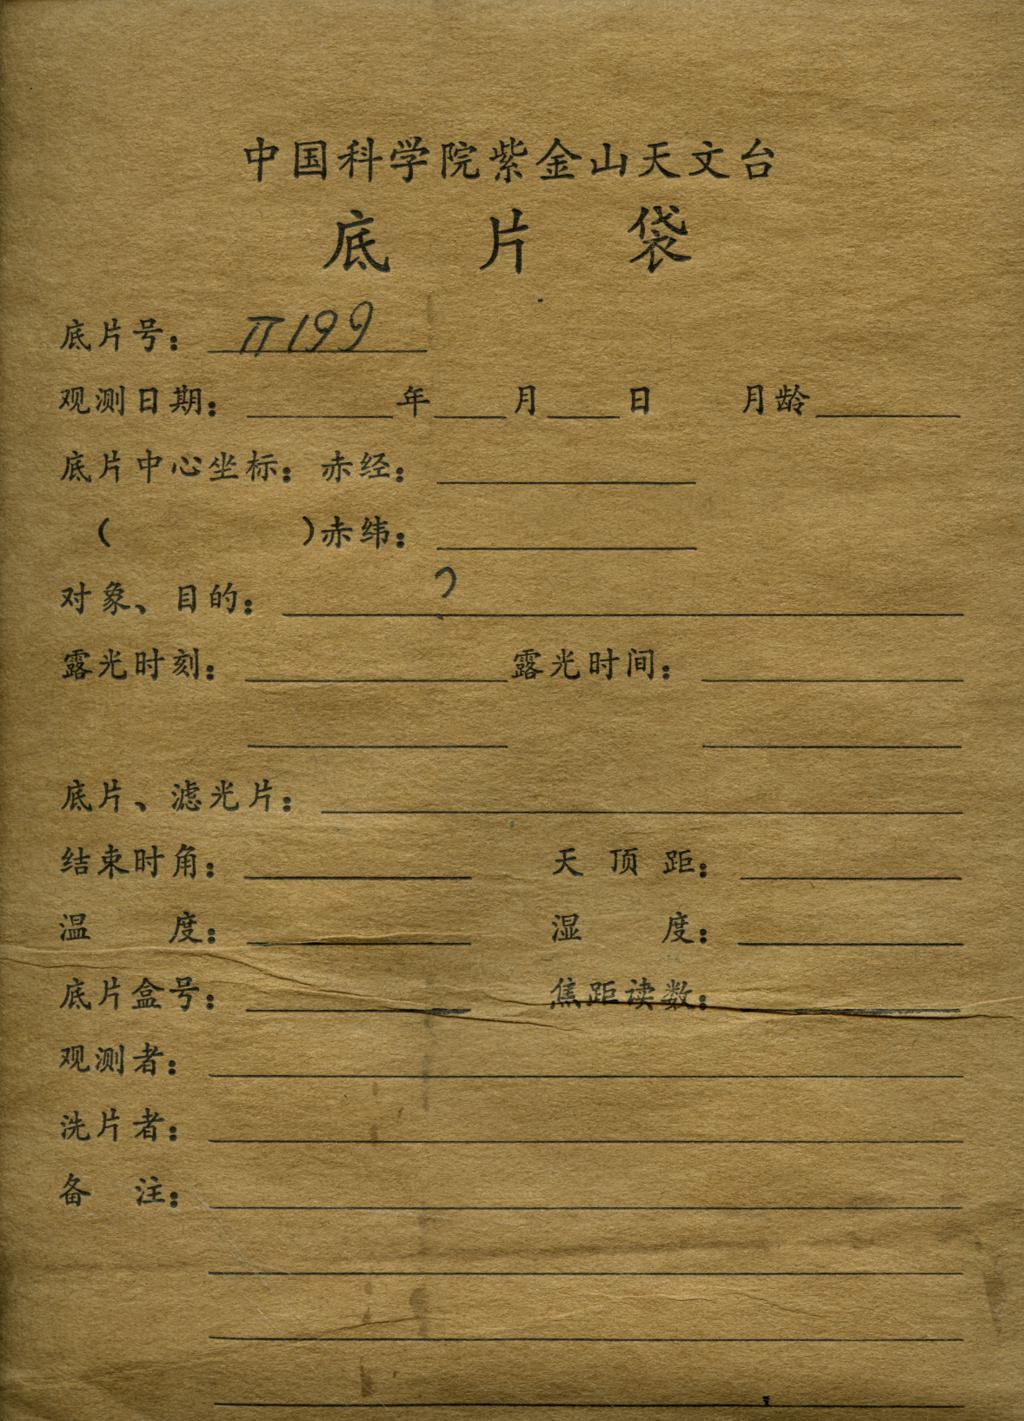 中国科学院紫金山天文台
底片袋
底片号：π199
观测日期：年月日 月龄
底片中心坐标：赤经：
（ ）赤纬：
对象、目的：?
露光时刻： 露光时间：
底片、滤光片：
结束时角： 天顶距：
温度： 湿度：
底片盒号： 焦距读数：
观测者：
洗片者：
备注：